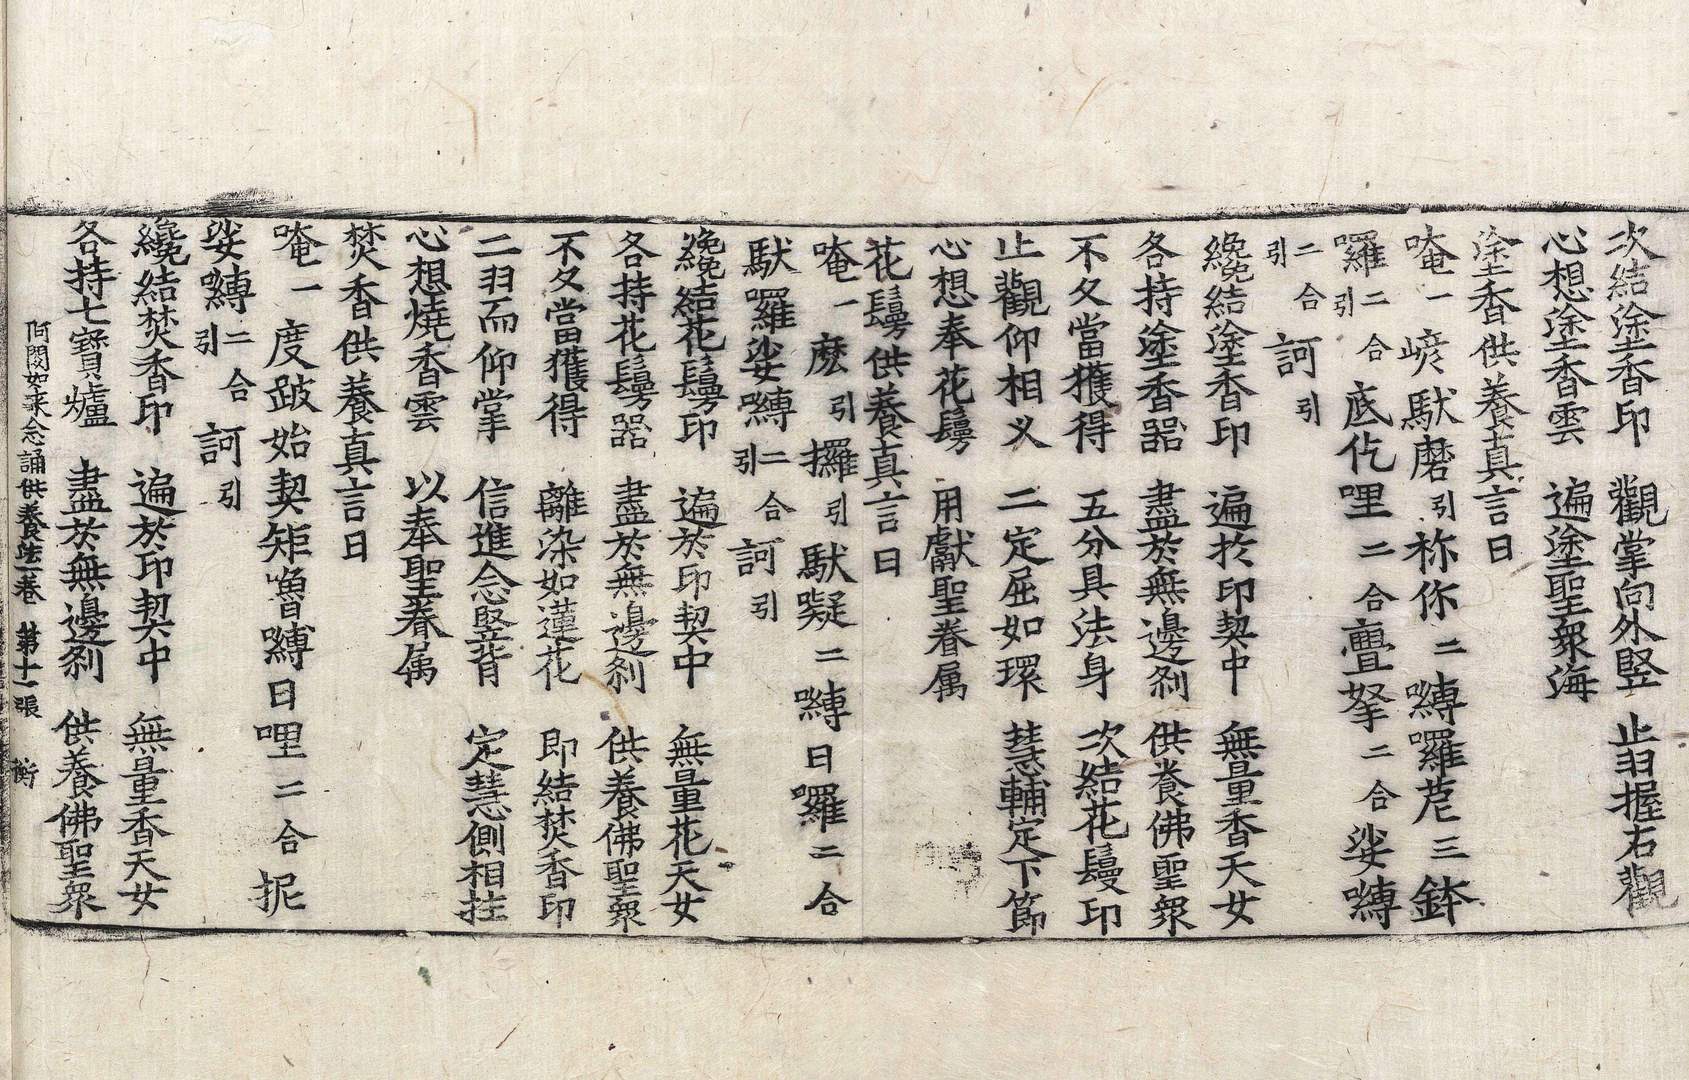 次結塗香印　觀掌向外竪　止羽握右觀
心想塗香雲　遍塗聖衆海
塗香供養真言曰
唵一嵃馱磨引祢你二嚩囉茞三鉢
囉二合引底仡哩二合亹拏二合娑嚩
二合引訶引
纔結塗香印　遍於印契中　無量香天女
各持塗香器　盡於無邊刹　供養佛聖衆
不久當獲得　五分具法身　次結花鬘印
止觀仰相叉　二定屈如環　慧輔定下節
心想奉花鬘　用獻聖眷属
花鬘供養真言曰
唵一麽引攞引馱㘈二嚩日囉二合
馱囉娑嚩二合引訶引
纔結花鬘印　遍於印契中　無量花天女
各持花鬘器　盡於無邊刹　供養佛聖衆
不久當獲得　離染如蓮花　即結焚香印
二羽而仰掌　信進念竪背　定慧側相拄
心想燒香雲　以奉聖眷属
焚香供養真言曰
唵一度跛始契矩嚕嚩日哩二合抳
娑嚩二合引訶引
纔結焚香印　遍於印契中　無量香天女
各持七寶爐　盡於無邊刹　供養佛聖衆
阿閦如来念誦供養法一卷　第十一張　衡